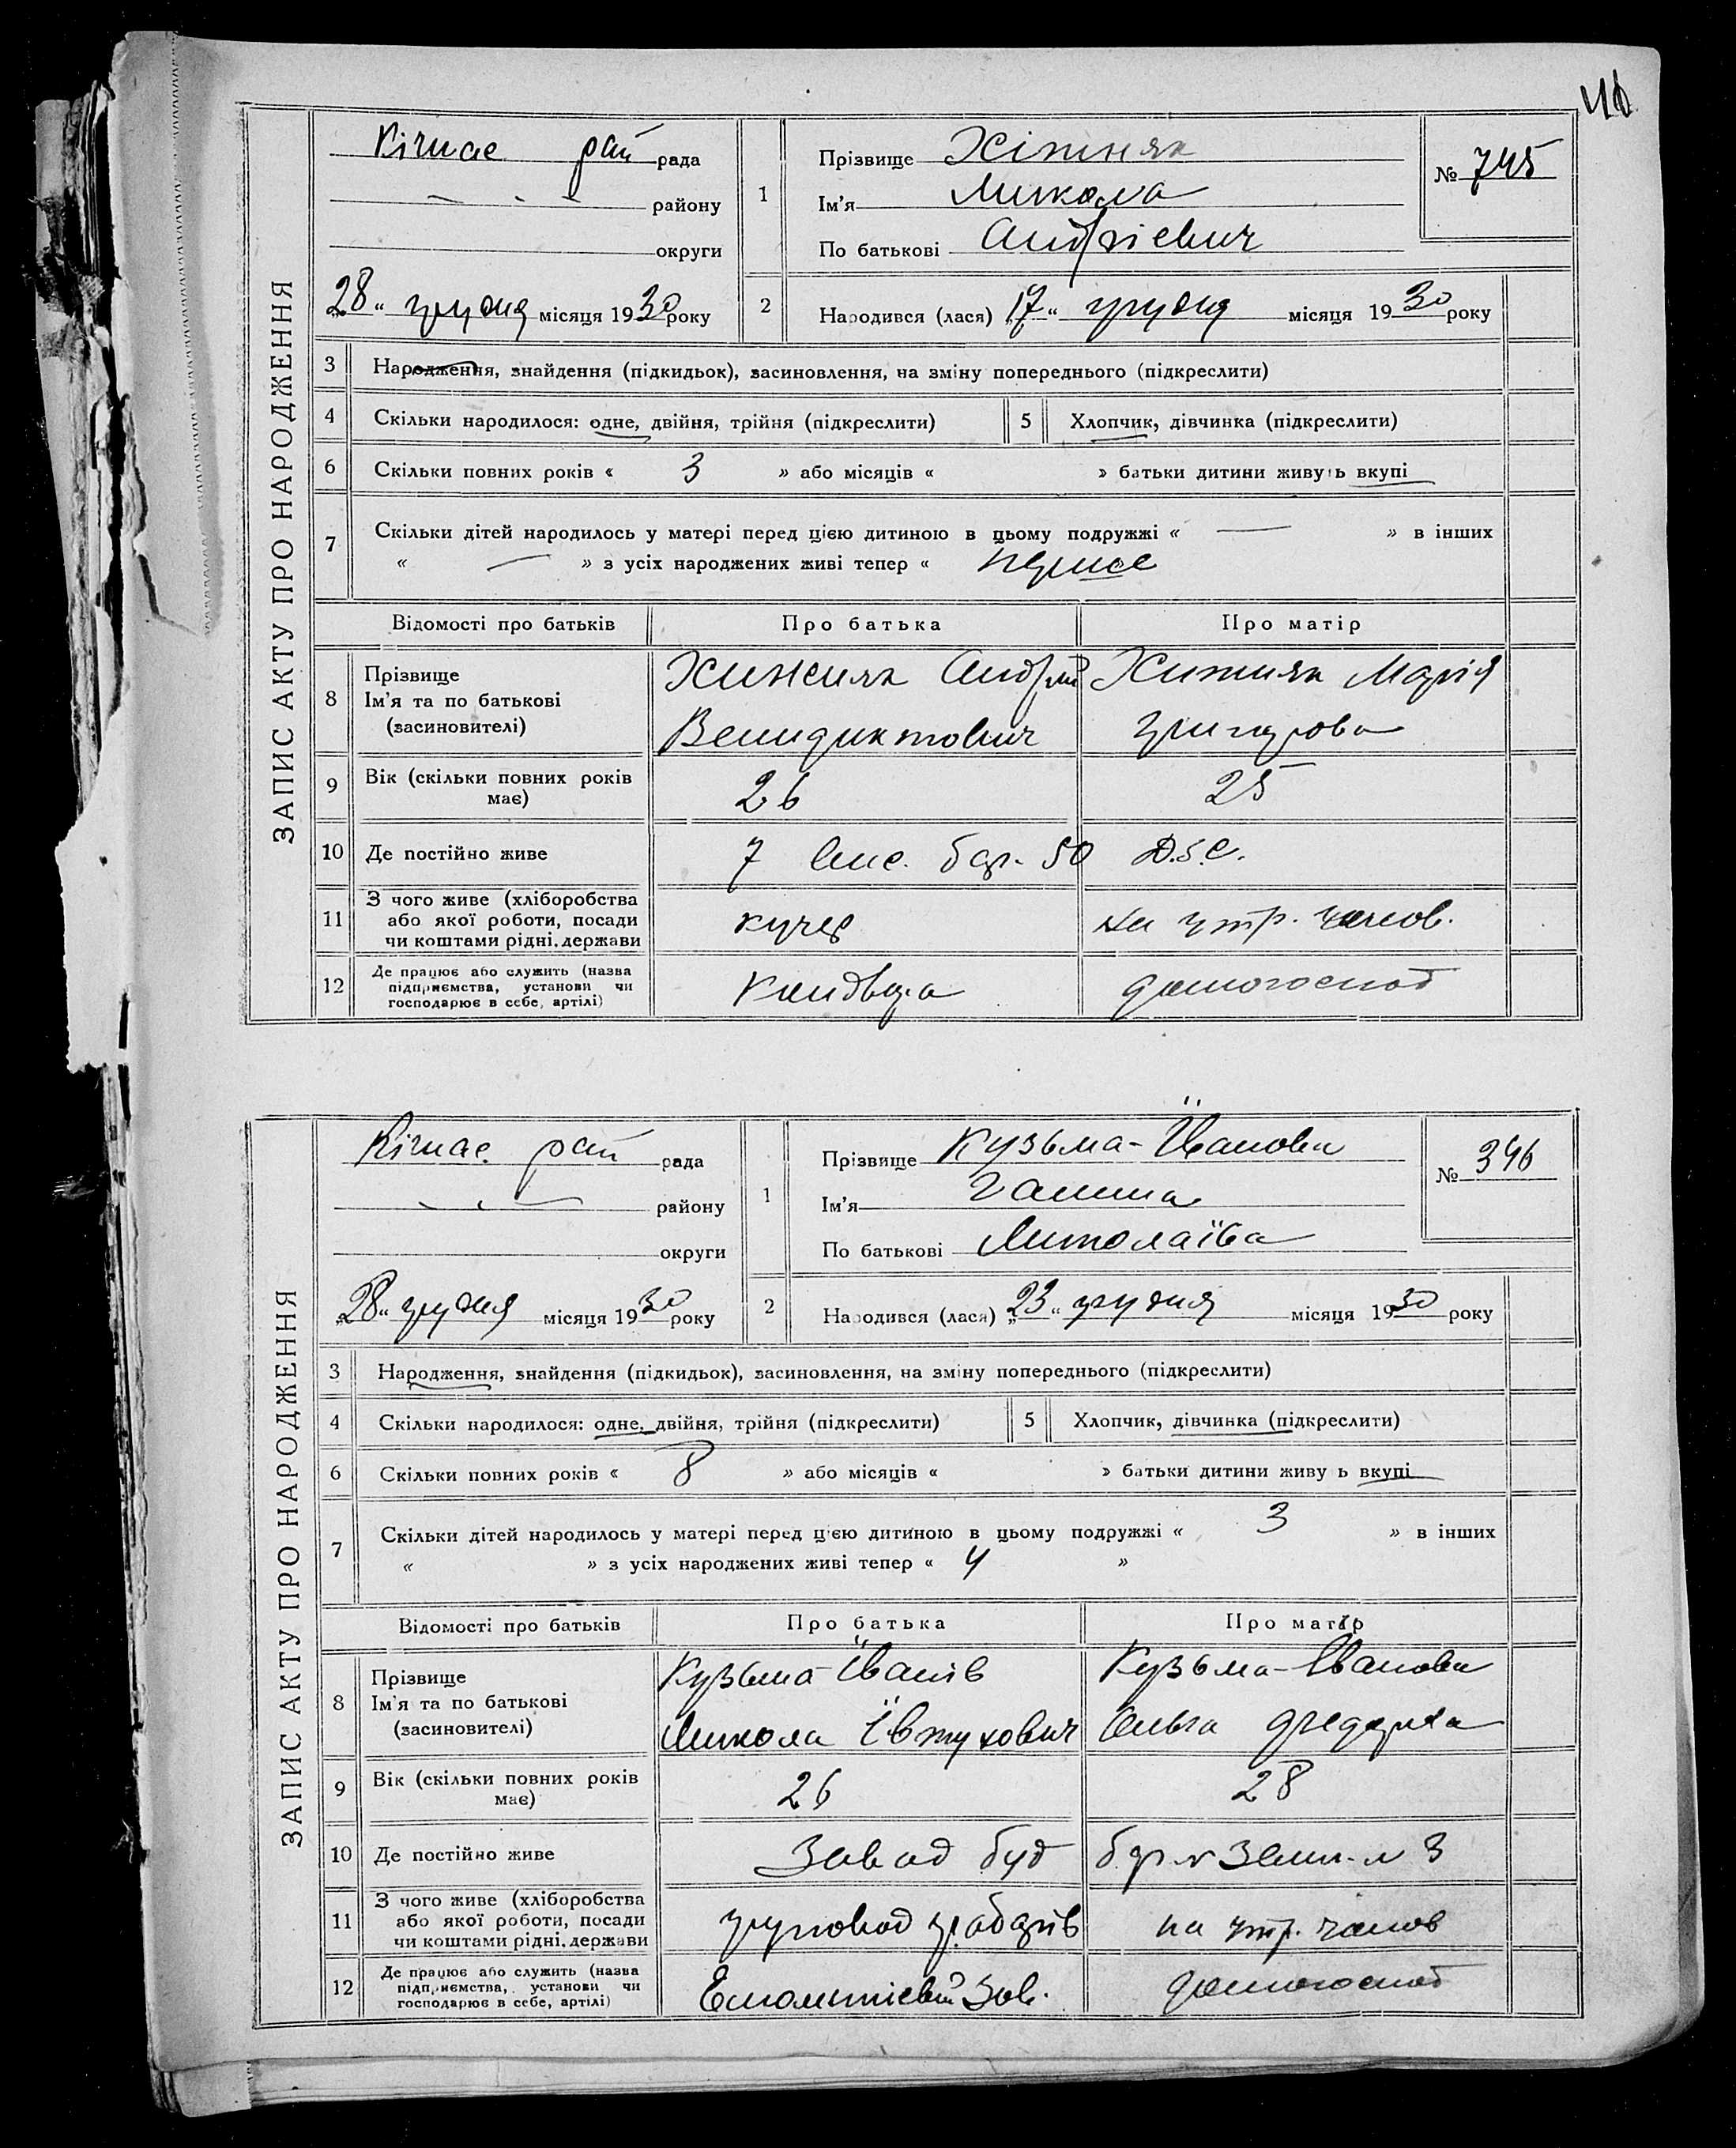 ЗАПИС АКТУ ПРО НАРОДЖЕННЯ
Кічкас рай рада
району
округи
„28“ грудня місяця 1930 року
1
Прізвище Хіжняк
Ім'я Микола
По батькові Андрієвич
№ 745
2 Народився (лася) „17“ грудня місяця 1930 року
3 Народження, знайдення (підкидьок), засиновлення, на зміну попереднього (підкреслити)
4 Скільки народилося: одне, двійня, трійня (підкреслити) 5 Хлопчик, дівчинка (підкреслити)
6 Скільки повних років « 3 » або місяців « » батьки дитини живуть вкупі
7 Скільки дітей народилось у матері перед цією дитиною в цьому подружжі « — » в інших
« — » з усіх народжених живі тепер « перше
Відомості про батьків Про батька Про матір
8 Прізвище
Ім'я та по батькові
(засиновителі)
Хижняк Андрій
Венидиктович
Хижняк Марія
Григорова
9 Вік (скільки повних років має) 26 25
10 Де постійно живе 7 бар. 50
11 З чого живе (хліборобства або якої роботи, посади чи коштами рідні, держави
кучер
на утр. чолов.
12 Де працює або служить (назва підприємства, установи чи господарює в себе, артілі)
домогоспод
ЗАПИС АКТУ ПРО НАРОДЖЕННЯ
Кічкас рай рада
району
округи
„28“ грудня місяця 1930 року
1
Прізвище Кузьма-Їванова
Ім'я Галина
По батькові Миколаїва
№ 346
2 Народився (лася) „23“ грудня місяця 1930 року
3 Народження, знайдення (підкидьок), засиновлення, на зміну попереднього (підкреслити)
4 Скільки народилося: одне, двійня, трійня (підкреслити) 5 Хлопчик, дівчинка (підкреслити)
6 Скільки повних років « 8 » або місяців « » батьки дитини живу ь вкупі
7 Скільки дітей народилось у матері перед цією дитиною в цьому подружжі « 3 » в інших
« » з усіх народжених живі тепер « 4 »
Відомості про батьків Про батька Про матір
8 Прізвище
Ім'я та по батькові
(засиновителі)
Кузьма-Їванів
Микола Ївтухович
Кузьма-Їванова
Ольга
9 Вік (скільки повних років має) 26 28
10 Де постійно живе Завод буд бар. 3
11 З чого живе (хліборобства або якої роботи, посади чи коштами рідні, держави
груповод грабарів
на утр. чолов
12 Де працює або служить (назва підприємства, установи чи господарює в себе, артілі)
зав.
домогоспод